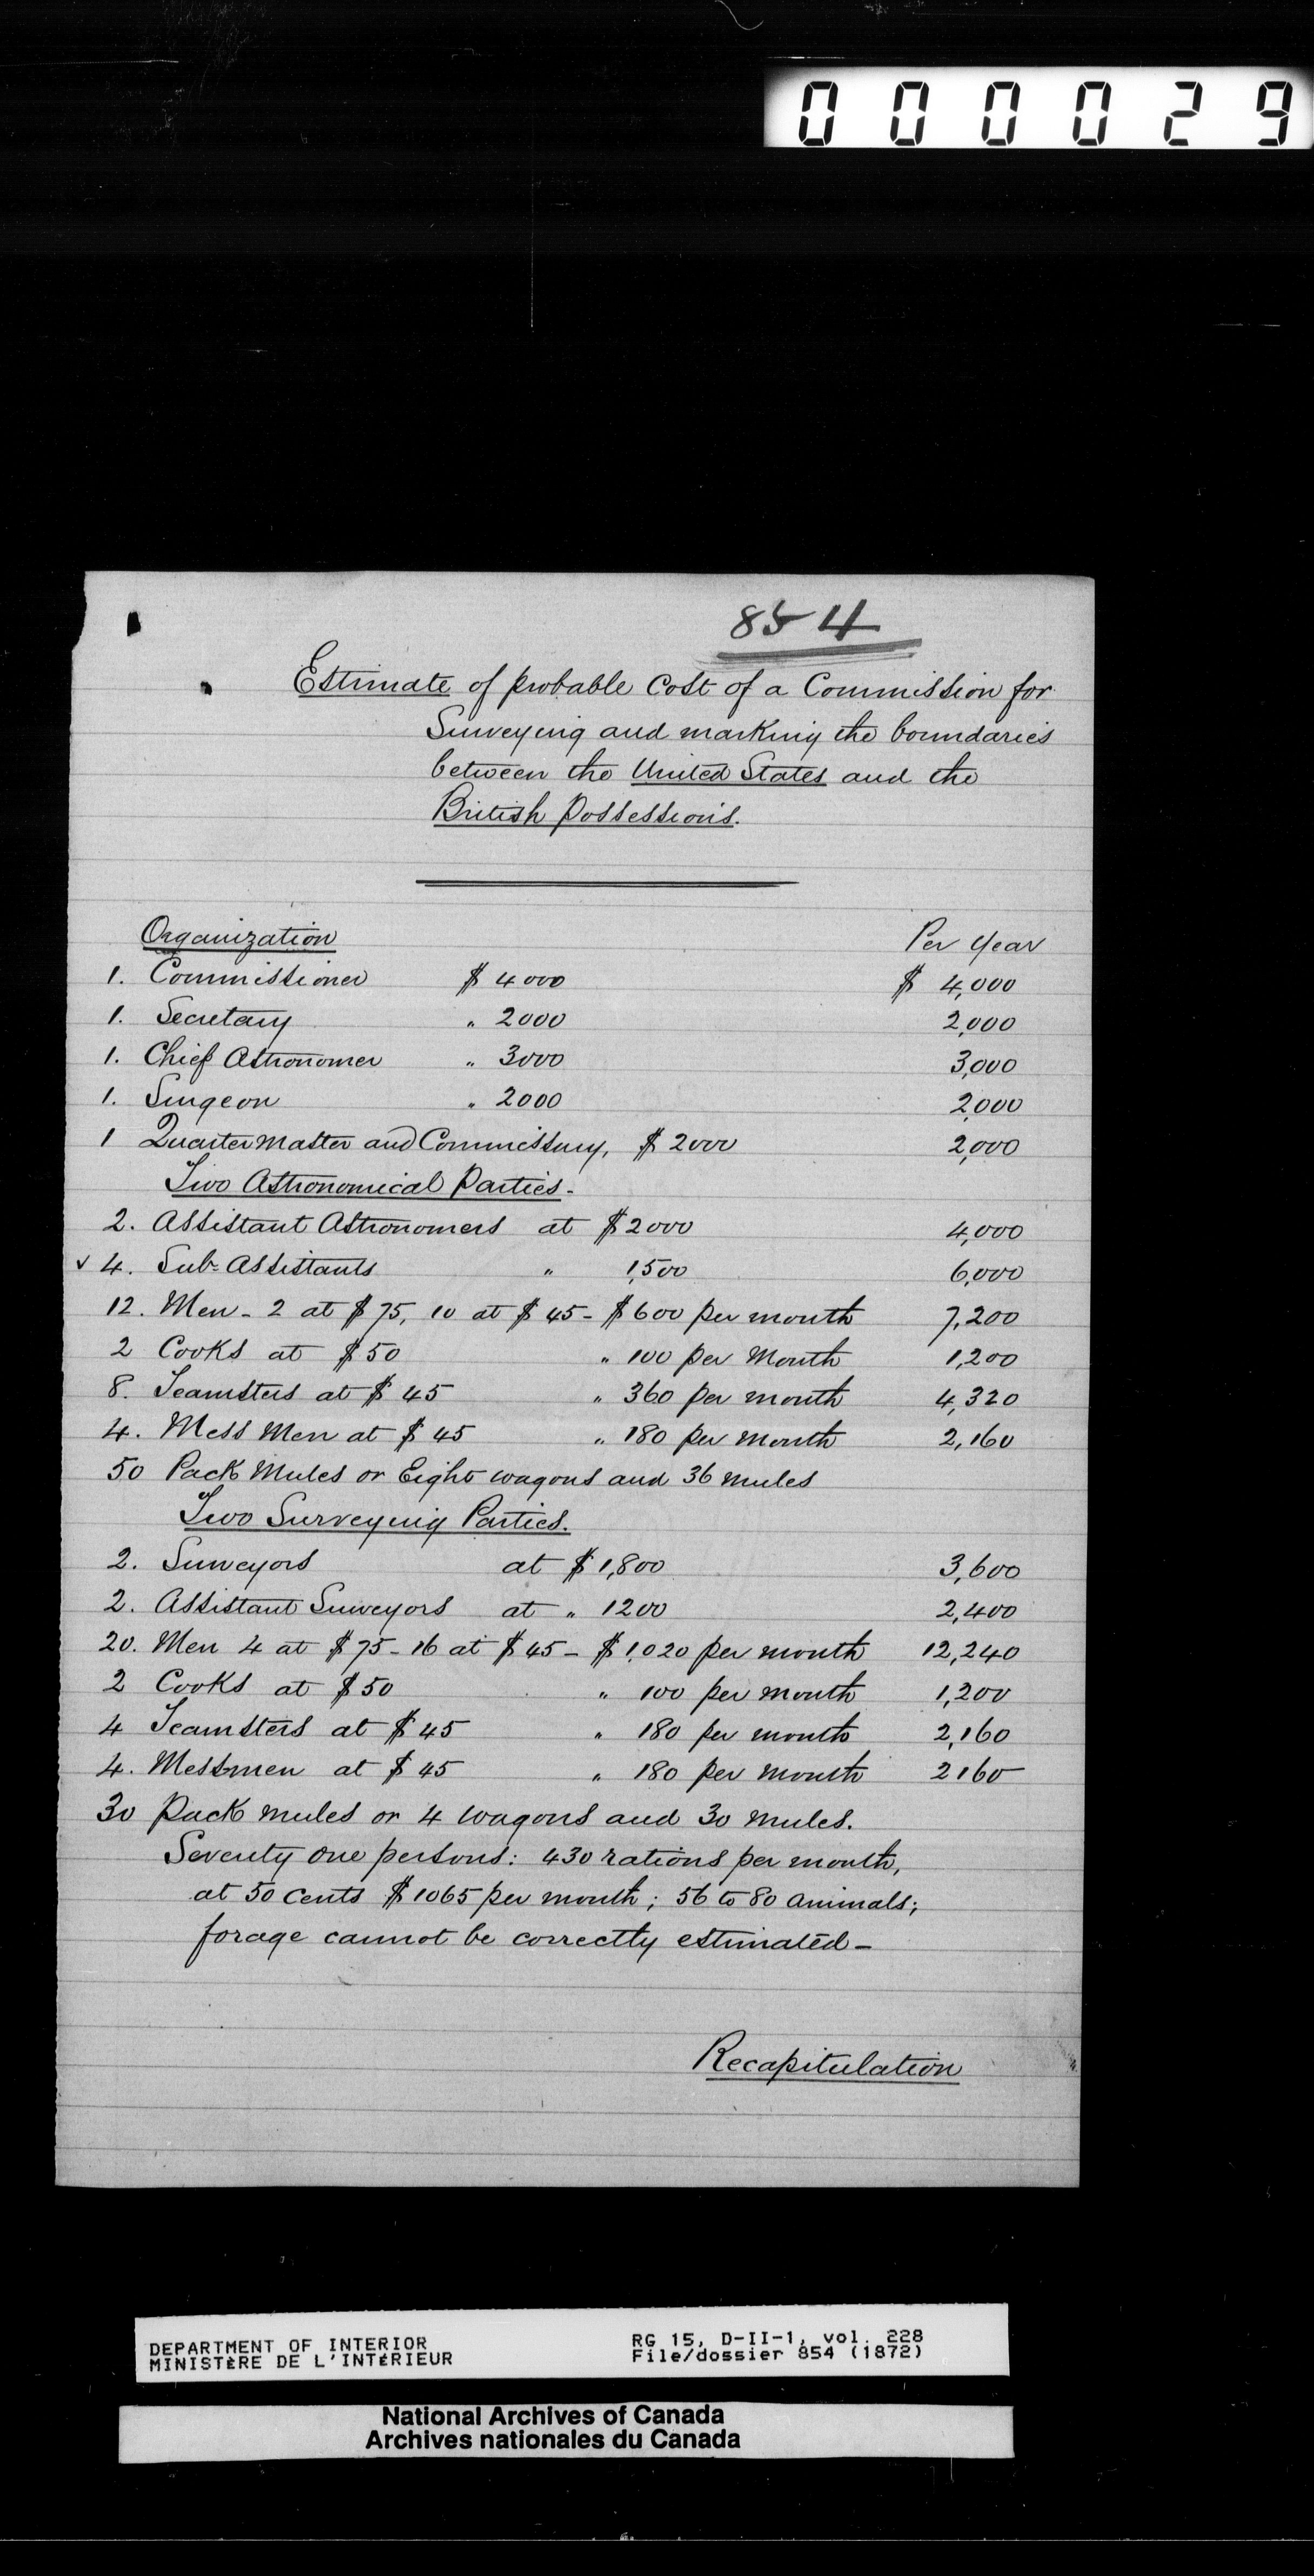 000029
854
Estimate of probable Cost of a Commission for
Surveying and marking the boundaries
between the United States and the
British Possessions.
Organization Per Year
1. Commissioner $ 4000 $ 4,000
1. Secretary " 2000 2,000
1. Chief Astronomer " 3000 3,000
1. Surgeon " 2000 2,000
1 Quarter Master and Commissary, $ 2000 2,000
Two Astronomical Parties.
2. Assistant Astronomers at $2000 4,000
✓ 4. Sub-Assistants " 1,500 6,000
12. Men - 2 at $75, 10 at $45 - $600 per month 7,200
2 Cooks at $50 " 100 per Month 1,200
8. Teamsters at $45 " 360 per month 4,320
4. Mess Men at $45 " 180 per month 2,160
50 Pack Mules or Eight wagons and 36 mules
Two Surveying Parties.
2. Surveyors at $1,800 3,600
2. Assistant Surveyors at " 1200 2,400
20. Men 4 at $75 - 16 at $45 - $1,020 per month 12,240
2 Cooks at $50 " 100 per month 1,200
4 Teamsters at $45 " 180 per month 2,160
4. Messmen at $45 " 180 per month 2160
30 Pack mules or 4 wagons and 30 mules.
Seventy one persons: 430 rations per month,
at 50 cents $1065 per month; 56 to 80 animals;
forage cannot be correctly estimated -
Recapitulation
DEPARTMENT OF INTERIOR RG 15, D-II-1, vol. 228
MINISTÈRE DE L'INTÉRIEUR File/dossier 854 (1872)
National Archives of Canada
Archives nationales du Canada